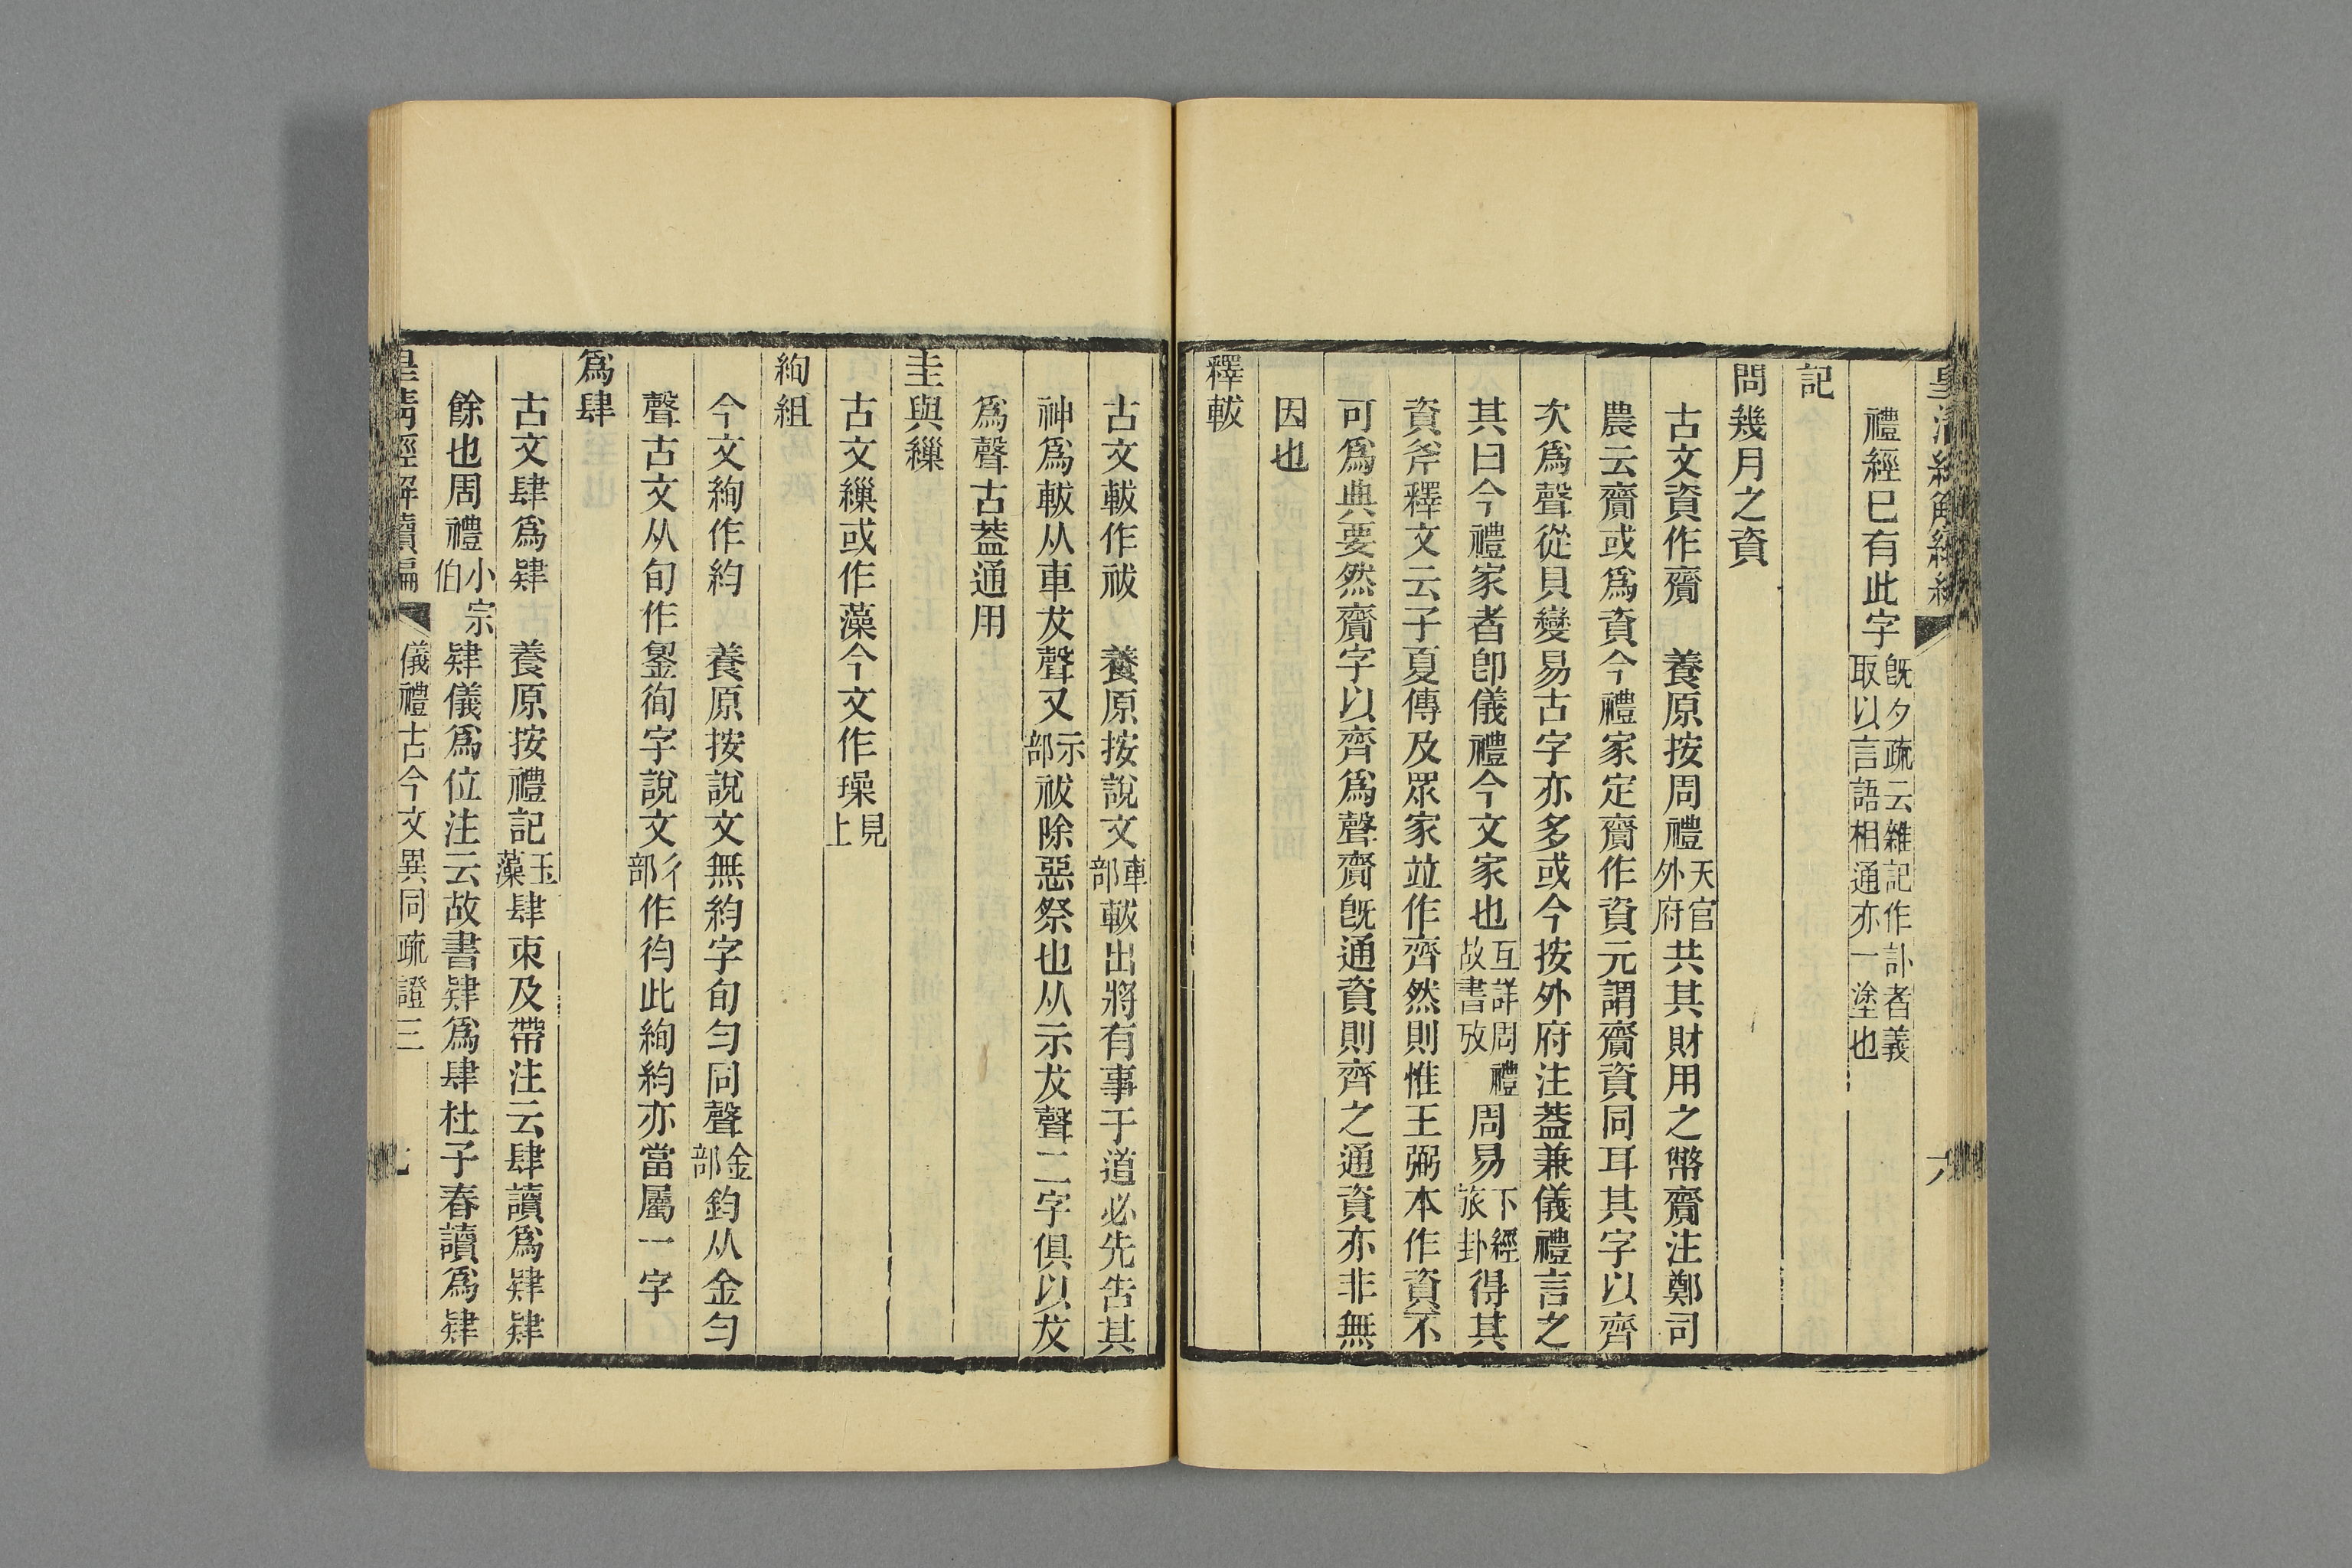 禮經巳有此字旣夕疏云雜記作訃者義取以言語相通亦一塗也
記
問幾月之資
古文資作齎　養原按周禮天官外府共其財用之幣齎注鄭司
農云齎或爲資今禮家定齎作資元謂齎資同耳其字以齊
次爲聲從貝變易古字亦多或今按外府注葢兼儀禮言之
其曰今禮家者卽儀禮今文家也互詳周禮故書攷周易下經旅卦得其
資斧釋文云子夏傳及眾家竝作齊然則惟王弼本作資不
可爲典要然齎字以齊爲聲齎旣通資則齊之通資亦非無
因也
釋軷
古文軷作祓　養原按說文車部軷出將有事于道必先告其
神爲軷从車犮聲又示部祓除惡祭也从示犮聲二字俱以犮
爲聲古葢通用
圭與繅
古文繅或作藻今文作璪見上
絢組
今文絢作約　養原按說文無約字旬勻同聲金部鈞从金勻
聲古文从旬作銞徇字說文彳部作袀此絢約亦當屬一字
爲肆
古文肆爲肄　養原按禮記玉藻肆束及帶注云肆讀爲肄肄
餘也周禮小宗伯肄儀爲位注云故書肄爲肆杜子春讀爲肄
皇清經解續編　儀禮古今文異同疏證三